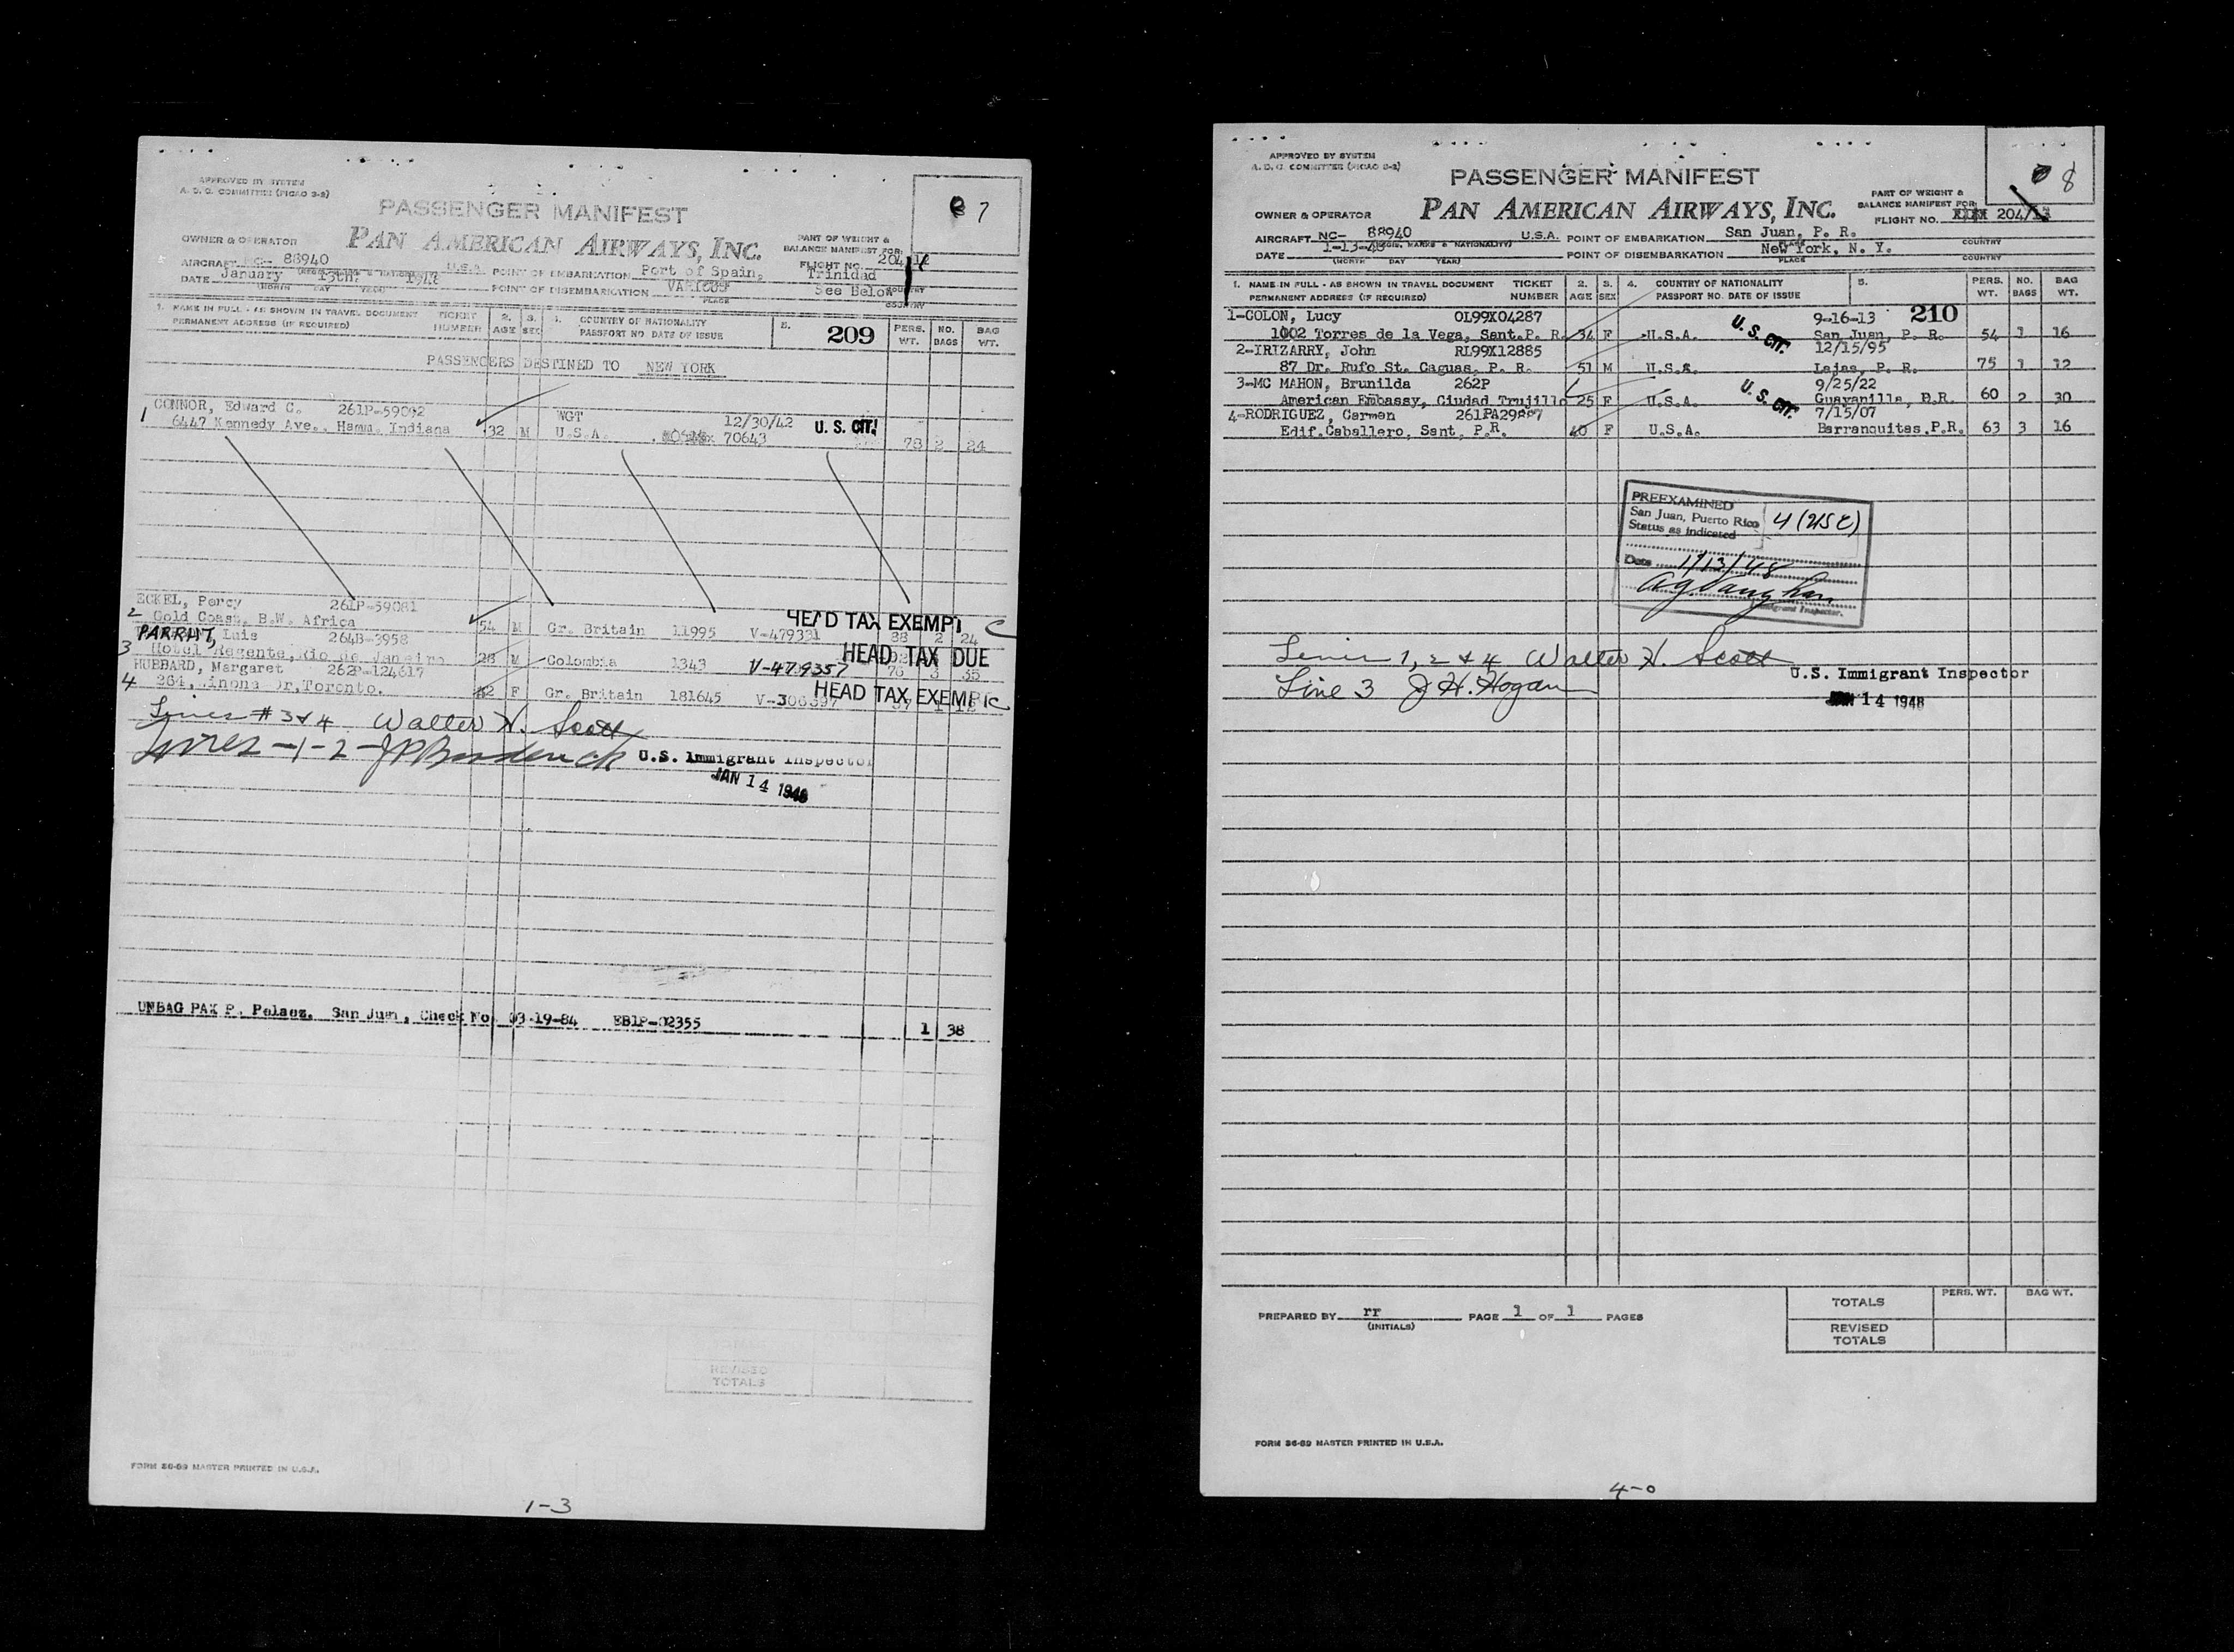 APPROVED BY SYSTEM
A. D. C. COMMITTEE (PICAO 3-2)
PASSENGER MANIFEST
7
OWNER & OPERATOR PAN AMERICAN AIRWAYS, INC. PART OF WEIGHT &
BALANCE MANIFEST FOR
FLIGHT NO. 204
AIRCRAFT NC- 88940 U.S.A. POINT OF EMBARKATION Port of Spain, Trinidad
DATE January 13th. 1948 POINT OF DISEMBARKATION VARIOUS See Below
(MONTH DAY YEAR) PLACE COUNTRY
1. NAME IN FULL - AS SHOWN IN TRAVEL DOCUMENT TICKET 2. 3. 4. COUNTRY OF NATIONALITY 5. 209 PERS. NO. BAG
PERMANENT ADDRESS (IF REQUIRED) NUMBER AGE SEX PASSPORT NO DATE OF ISSUE WT. BAGS WT.
PASSENGERS DESTINED TO NEW YORK
1 CONNOR, Edward C. 261P-59092 WGT 12/30/42 U. S. CIT.
6447 Kennedy Ave., Hamm. Indiana 32 M U.S.A. 70643 78 2 24
ECKEL, Percy 261P-59081 HEAD TAX EXEMPT C
2 Gold Coast, B.W. Africa 54 M Gr. Britain 11995 V-479331 88 2 24
PARRUT, Luis 264B-3958 HEAD TAX DUE
3 Hotel Regente, Rio de Janeiro 28 M Colombia 1343 V-479357 76 3 35
HUBBARD, Margaret 262P-124617 HEAD TAX EXEMPT C
4 264, Dr, Toronto. 62 F Gr. Britain 181645 V-306397
Lines # 3 & 4 Walter H. Scott
Lines - 1 - 2 - U.S. Immigrant Inspector
JAN 14 1948
UNBAG PAX P. Pelaez, San Juan, Check No. 03-19-84 EB1P-02355 1 38
REVISED
TOTALS
FORM 36-69 MASTER PRINTED IN U.S.A.
1-3
APPROVED BY SYSTEM
A. D. C. COMMITTEE (PICAO 3-2)
PASSENGER MANIFEST
8
OWNER & OPERATOR PAN AMERICAN AIRWAYS, INC. PART OF WEIGHT &
BALANCE MANIFEST FOR
FLIGHT NO. 204/13
AIRCRAFT NC- 88940 U.S.A. POINT OF EMBARKATION San Juan, P. R.
(REG. MARKS & NATIONALITY) PLACE COUNTRY
DATE 1-13-48 POINT OF DISEMBARKATION New York, N. Y.
(MONTH DAY YEAR) PLACE COUNTRY
1. NAME IN FULL - AS SHOWN IN TRAVEL DOCUMENT TICKET 2. 3. 4. COUNTRY OF NATIONALITY 5. PERS. NO. BAG
PERMANENT ADDRESS (IF REQUIRED) NUMBER AGE SEX PASSPORT NO. DATE OF ISSUE WT. BAGS WT.
1-COLON, Lucy OL99X04287 9-16-13 210
1002 Torres de la Vega, Sant.P. R. 34 F U.S.A. U. S. CIT. San Juan, P. R. 54 1 16
2-IRIZARRY, John RL99X12885 12/15/95
87 Dr. Rufo St. Caguas, P. R. 51 M U.S.A. Lajas, P. R. 75 1 12
3-MC MAHON, Brunilda 262P 9/25/22
American Embassy, Ciudad Trujillo 25 F U.S.A. U. S. CIT. Guayanilla, P.R. 60 2 30
4-RODRIGUEZ, Carmen 261PA29887 7/15/07
Edif.Caballero, Sant, P.R. 40 F U.S.A. Barranquitas.P.R. 63 3 16
PREEXAMINED
San Juan, Puerto Rico 4 (USC)
Status as indicated
Date 1/13/48
Immigrant Inspector.
Lines 1, 2 & 4 Walter H. Scott
U.S. Immigrant Inspector
Line 3 J H. Hogan
JAN 14 1948
PREPARED BY rr PAGE 1 OF 1 PAGES
(INITIALS)
TOTALS PERS. WT. BAG WT.
REVISED
TOTALS
FORM 36-69 MASTER PRINTED IN U.S.A.
4-0